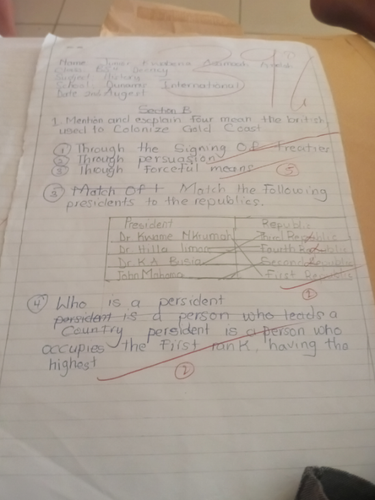 Name
Class Basic
Subject History
School Dunamis International
Date 2nd August
39%
Section B
1. Mention and explain four mean the british
used to Colonize Gold Coast
① Through the Signing Of Treaties
② Through persuasion
③ Through forceful means
③
③ Match Of t Match the following
presidents to the republics.
President Republic
Dr. Kwame Nkrumah Third Republic
Dr. Hilla liman Fourth Republic
Dr. K.A. Busia Second Republic
John Mahama First Republic
④ Who is a persident
persident is a person who leads a
Country persident is a person who
occupies the First rank, having the
highest
②